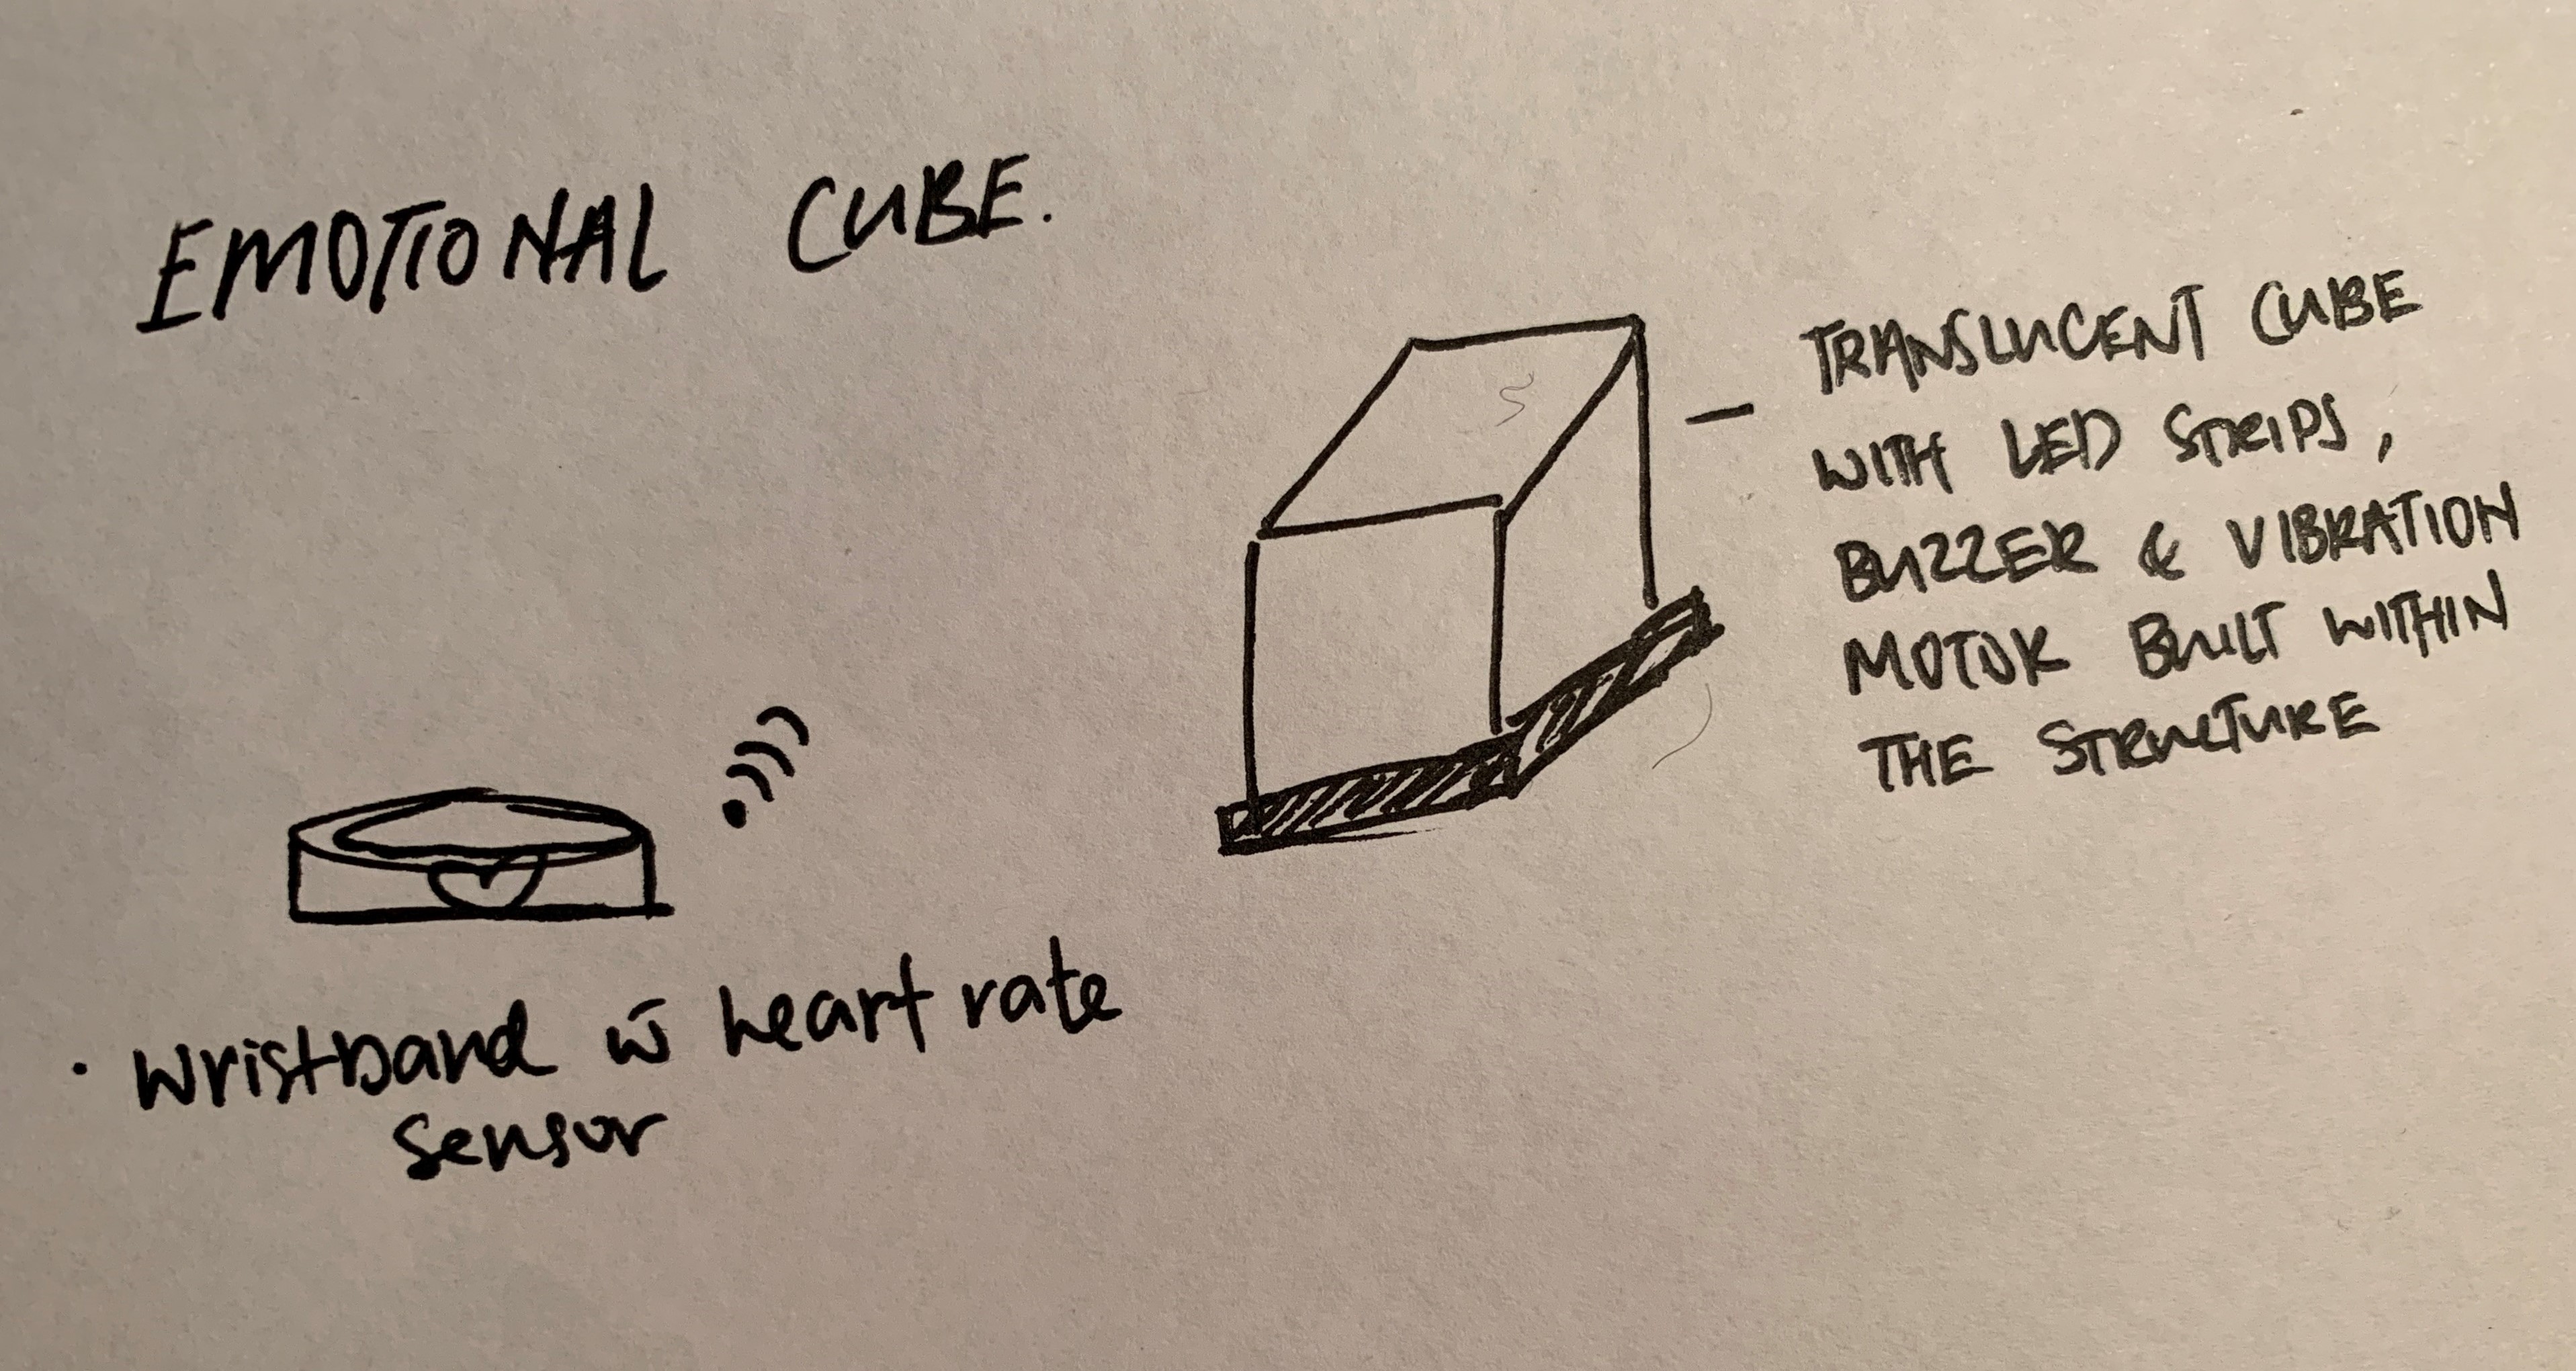 EMOTIONAL CUBE.
TRANSLUCENT CUBE
WITH LED STRIPS,
BUZZER & VIBRATION
MOTOR BUILT WITHIN
THE STRUCTURE
· wristband w̄ heart rate
sensor